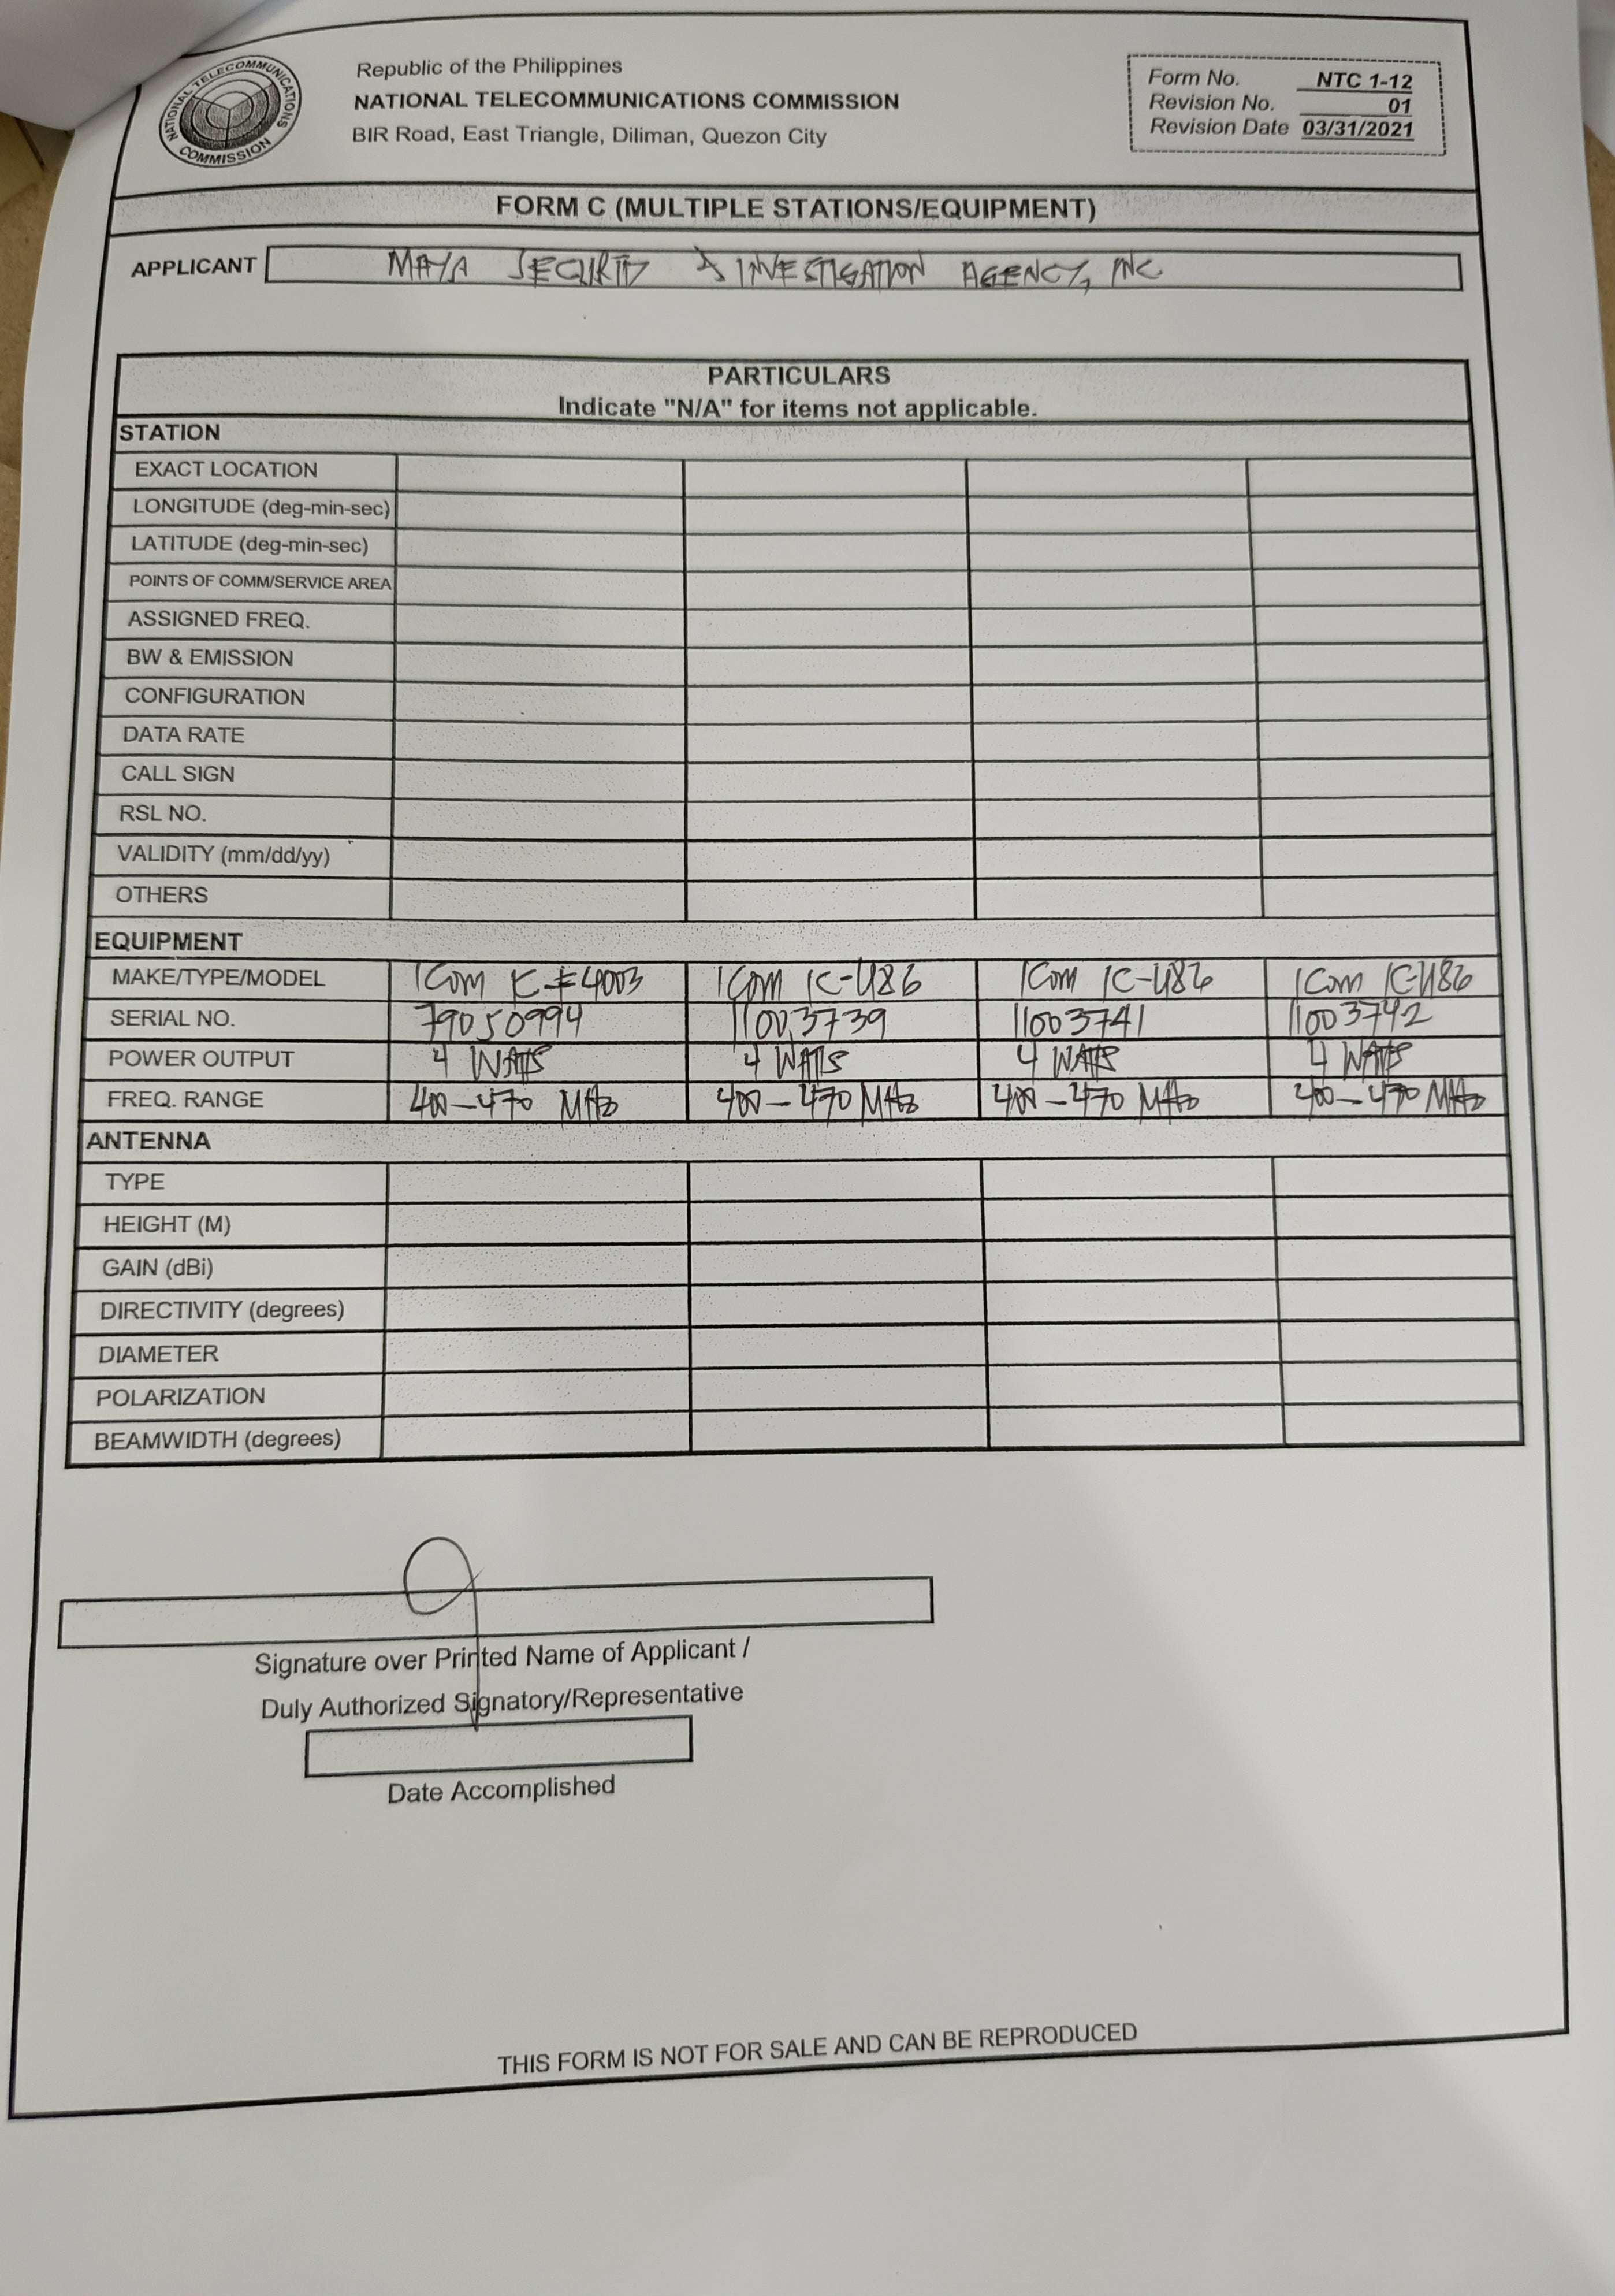 NATIONAL TELECOMMUNICATIONS COMMISSION
Republic of the Philippines
NATIONAL TELECOMMUNICATIONS COMMISSION
BIR Road, East Triangle, Diliman, Quezon City
Form No. NTC 1-12
Revision No. 01
Revision Date 03/31/2021
FORM C (MULTIPLE STATIONS/EQUIPMENT)
APPLICANT MAYA SECURITY & INVESTIGATION AGENCY, INC.
PARTICULARS
Indicate "N/A" for items not applicable.
STATION
EXACT LOCATION
LONGITUDE (deg-min-sec)
LATITUDE (deg-min-sec)
POINTS OF COMM/SERVICE AREA
ASSIGNED FREQ.
BW & EMISSION
CONFIGURATION
DATA RATE
CALL SIGN
RSL NO.
VALIDITY (mm/dd/yy)
OTHERS
EQUIPMENT
MAKE/TYPE/MODEL ICom IC-F4003 ICom IC-U86 ICom IC-U86 ICom IC-U86
SERIAL NO. 79050994 11003739 11003741 11003742
POWER OUTPUT 4 WATTS 4 WATTS 4 WATTS 4 WATTS
FREQ. RANGE 400-470 MHz 400-470 MHz 400-470 MHz 400-470 MHz
ANTENNA
TYPE
HEIGHT (M)
GAIN (dBi)
DIRECTIVITY (degrees)
DIAMETER
POLARIZATION
BEAMWIDTH (degrees)
Signature over Printed Name of Applicant /
Duly Authorized Signatory/Representative
Date Accomplished
THIS FORM IS NOT FOR SALE AND CAN BE REPRODUCED